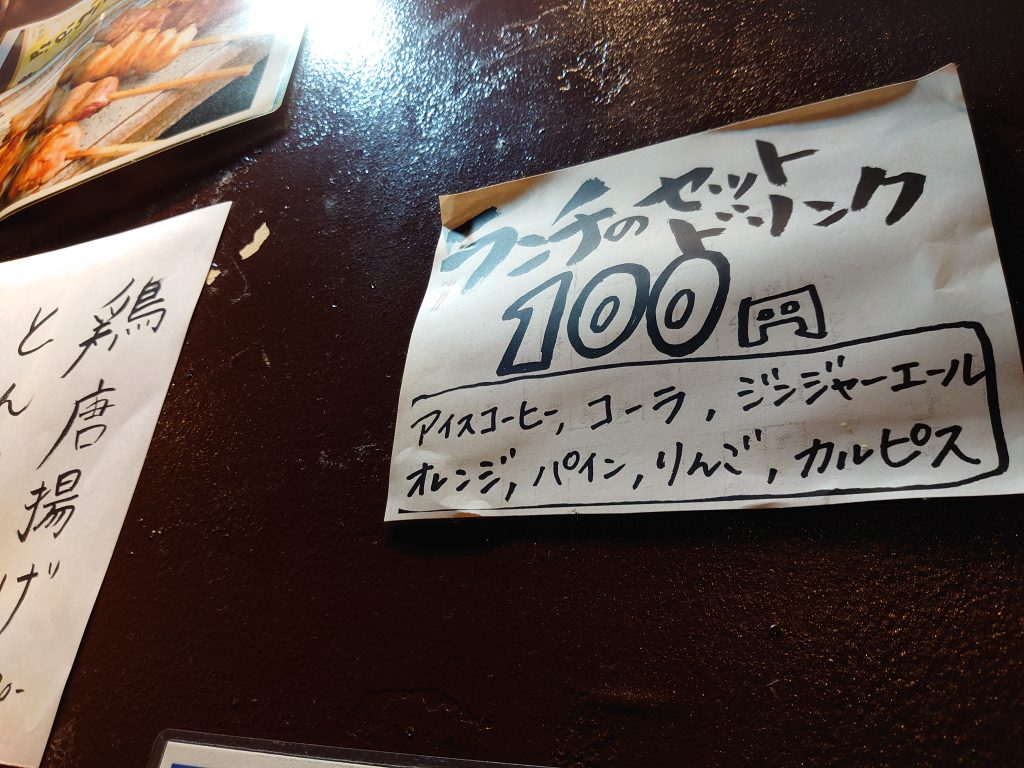 ランチのセット
ドリンク
100円
アイスコーヒー, コーラ, ジンジャーエール
オレンジ, パイン, りんご, カルピス
鶏唐揚げ
とん